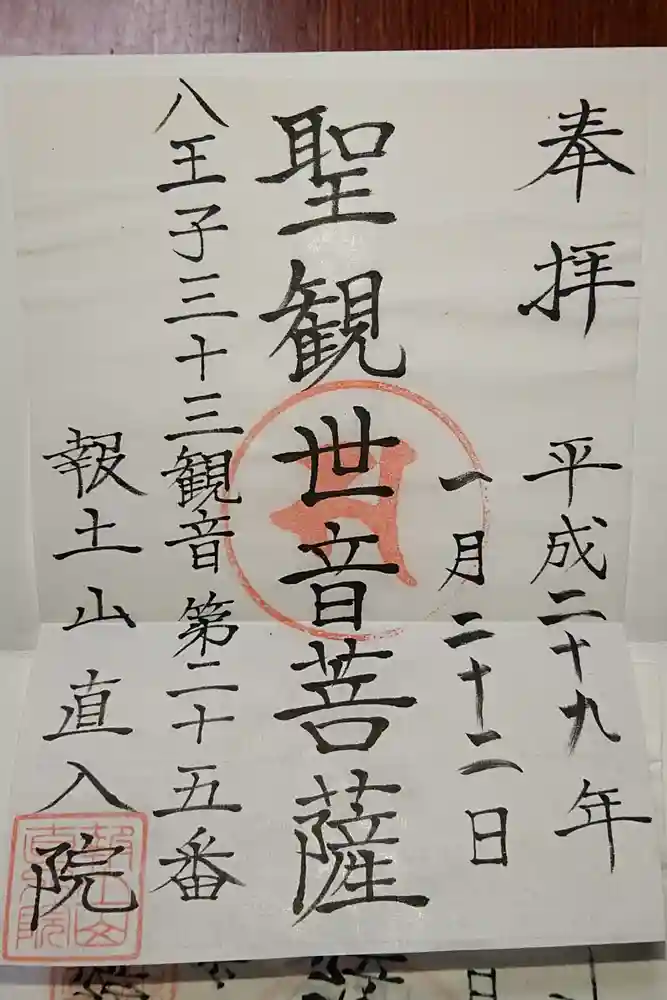 奉拝 平成二十九年
一月二十二日
聖観世音菩薩
八王子三十三観音 第二十五番
報土山直入院